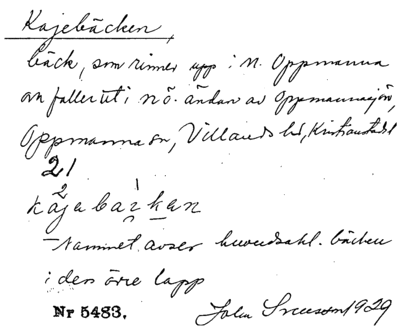 Kajebäcken,
bäck, som rinner upp i n. Oppmanna
och faller ut i nö. ändan av Oppmannasjön,
Oppmanna sn, Villands hd, Kristianstads l.
21
kajabäkan
Namnet avser huvudsakl. bäcken
i dess övre lopp
Nr 5483. John Svensson 1929